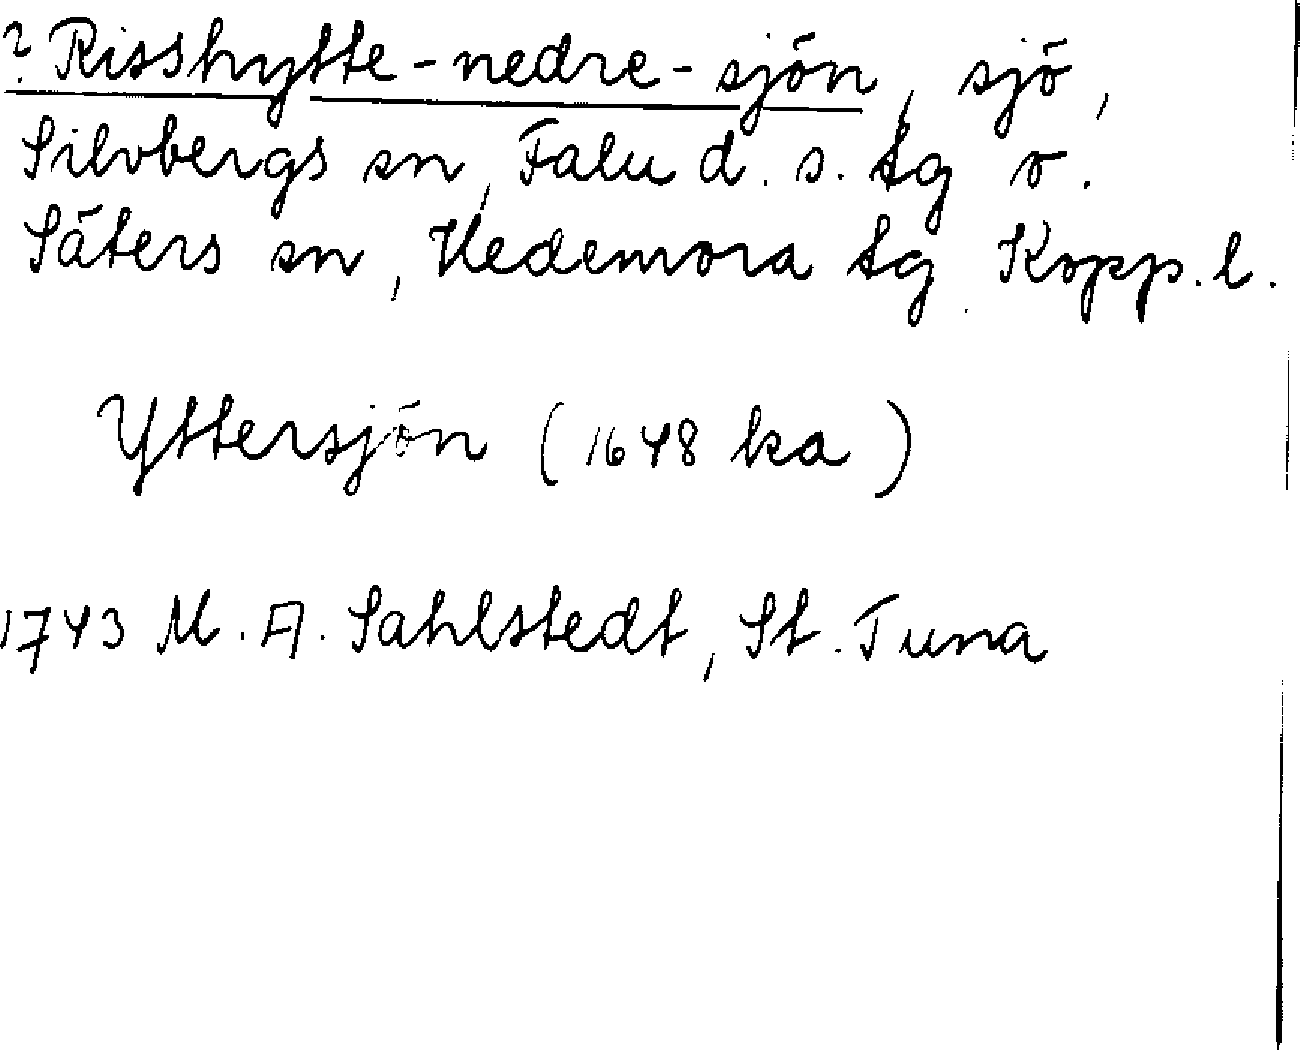 ? Risshytte-nedre-sjön, sjö,
Silvbergs sn, Falu d. s. tg o.
Säters sn, Hedemora tg. Kopp. l.
Yttersjön (1648 ka)
1743 M. A. Sahlstedt, St. Tuna